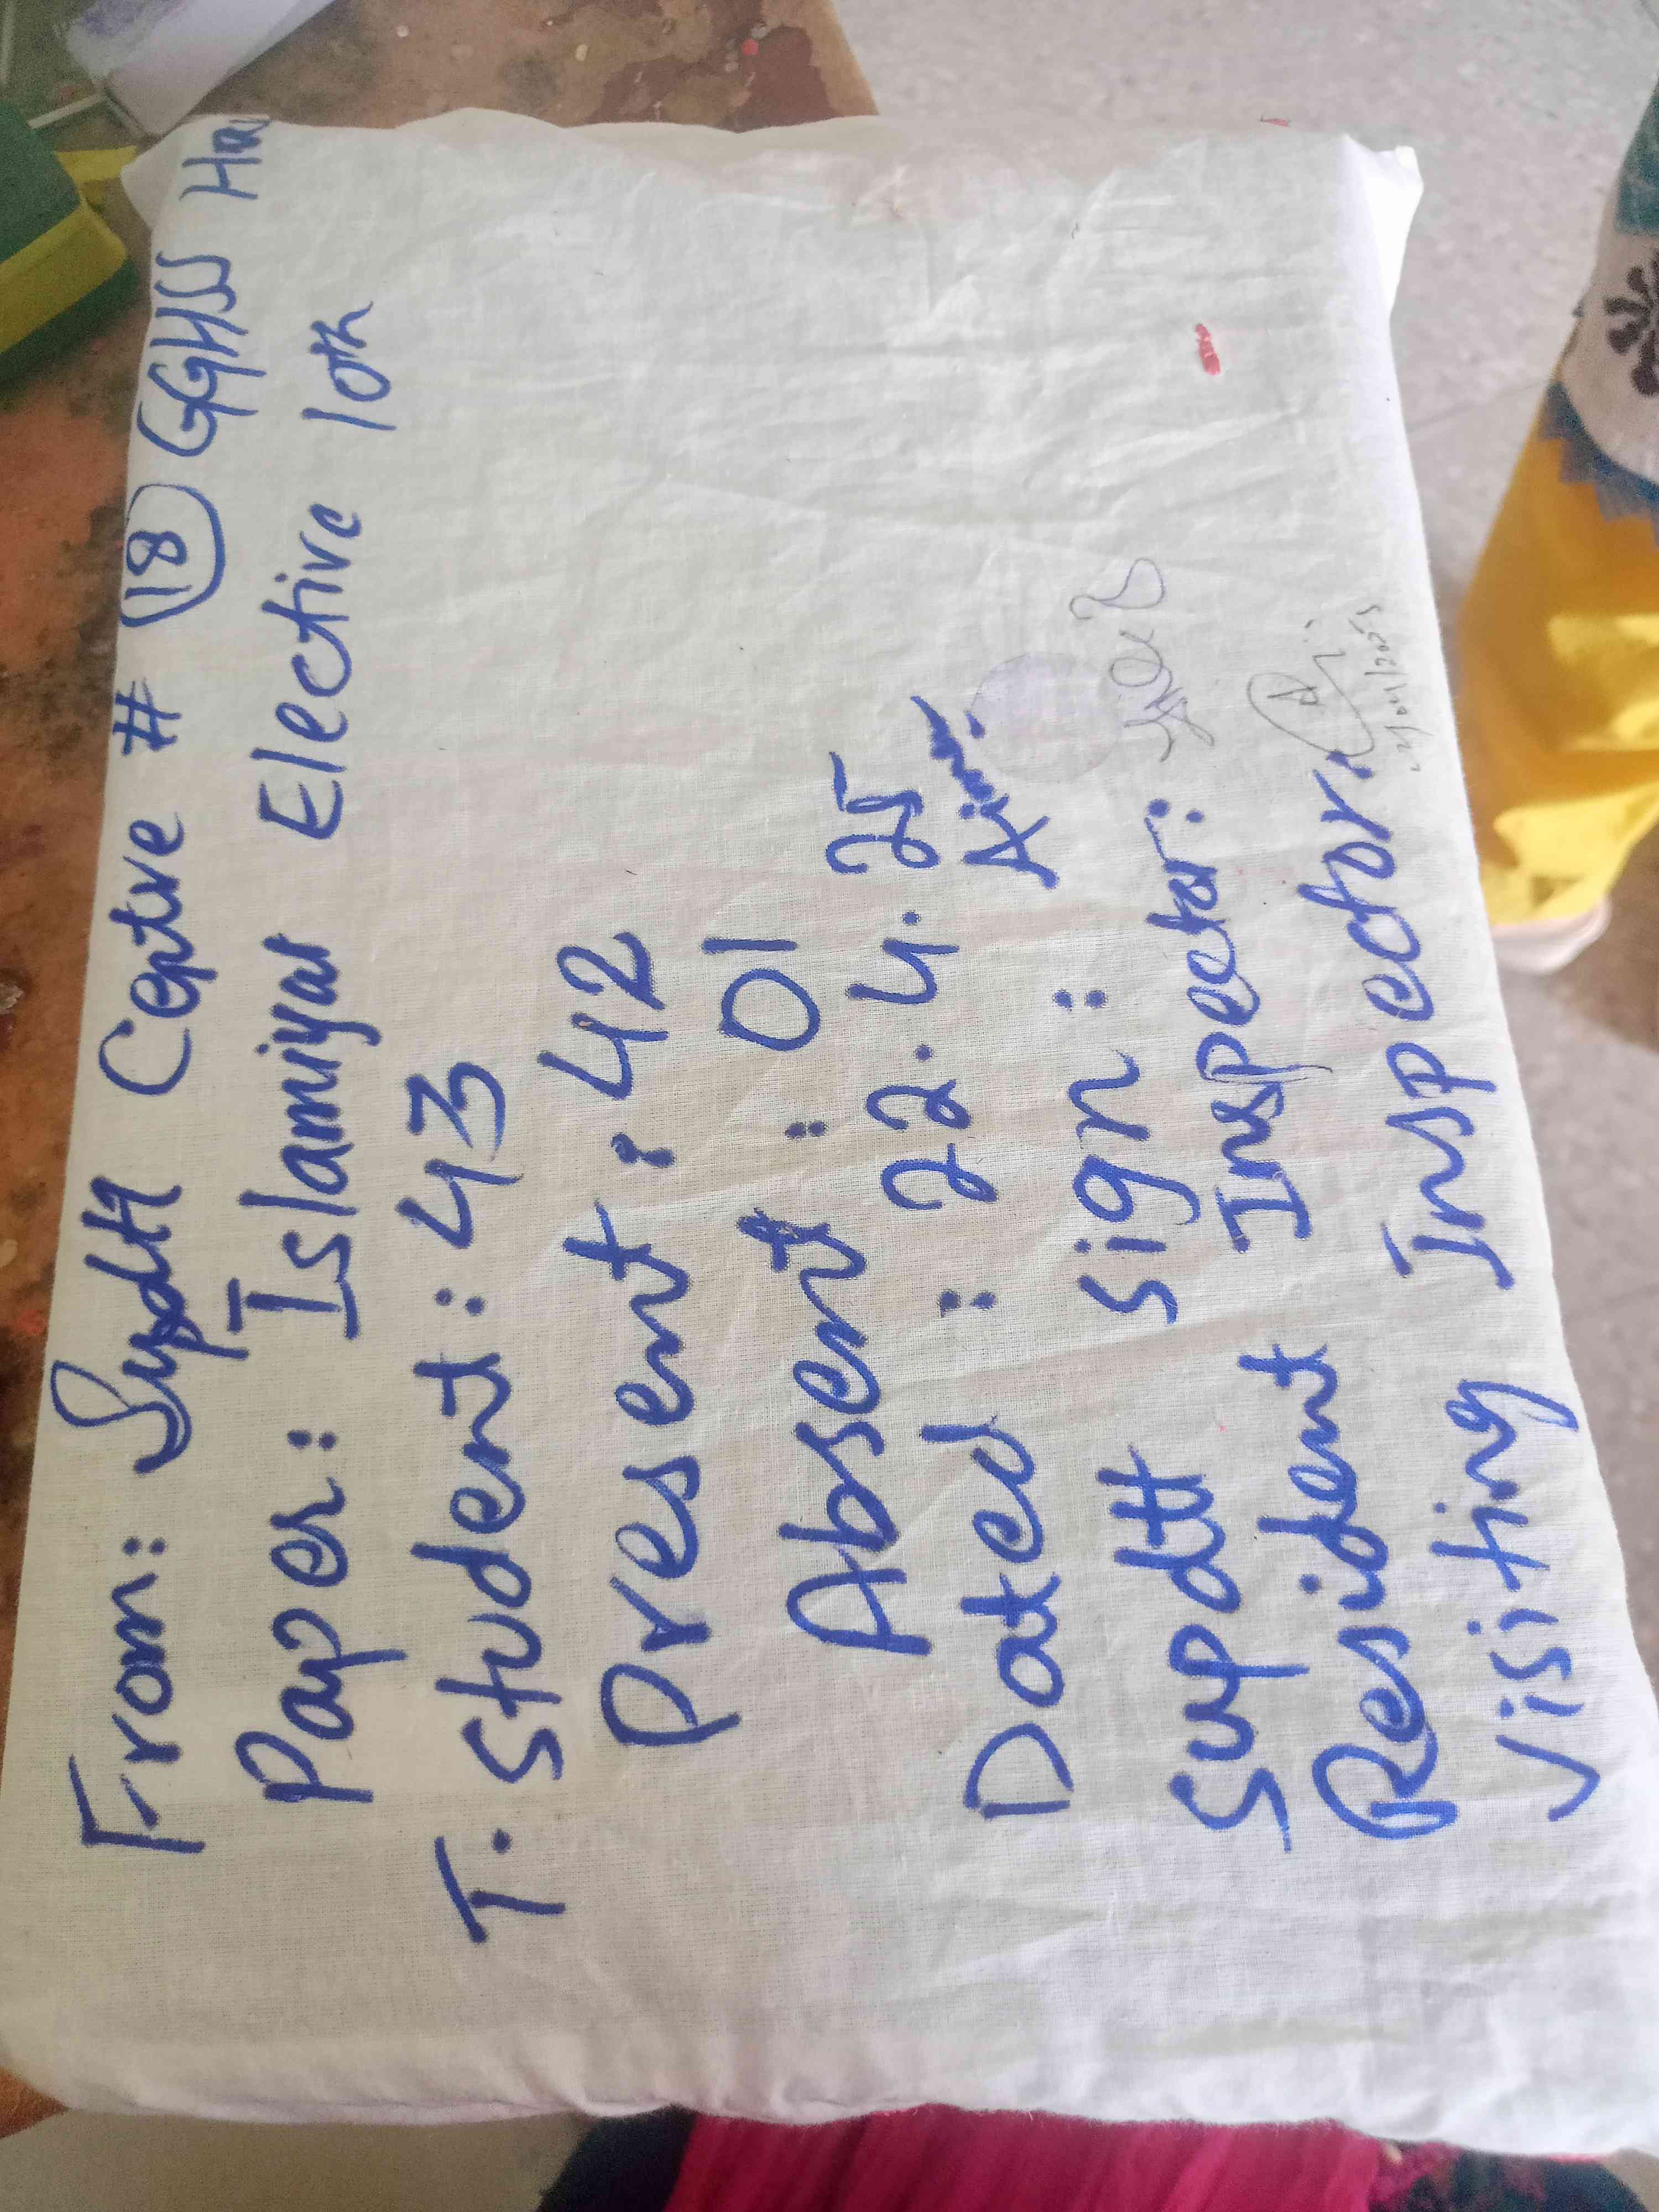 From: Supdtt Centre # 18 GGHSS Ha
Paper: Islamiyat Elective 10th
T. Student: 43
Present: 42
Absent: 01
Dated: 22.4.25
Supdtt Sign:
Resident Inspector:
Visiting Inspector: